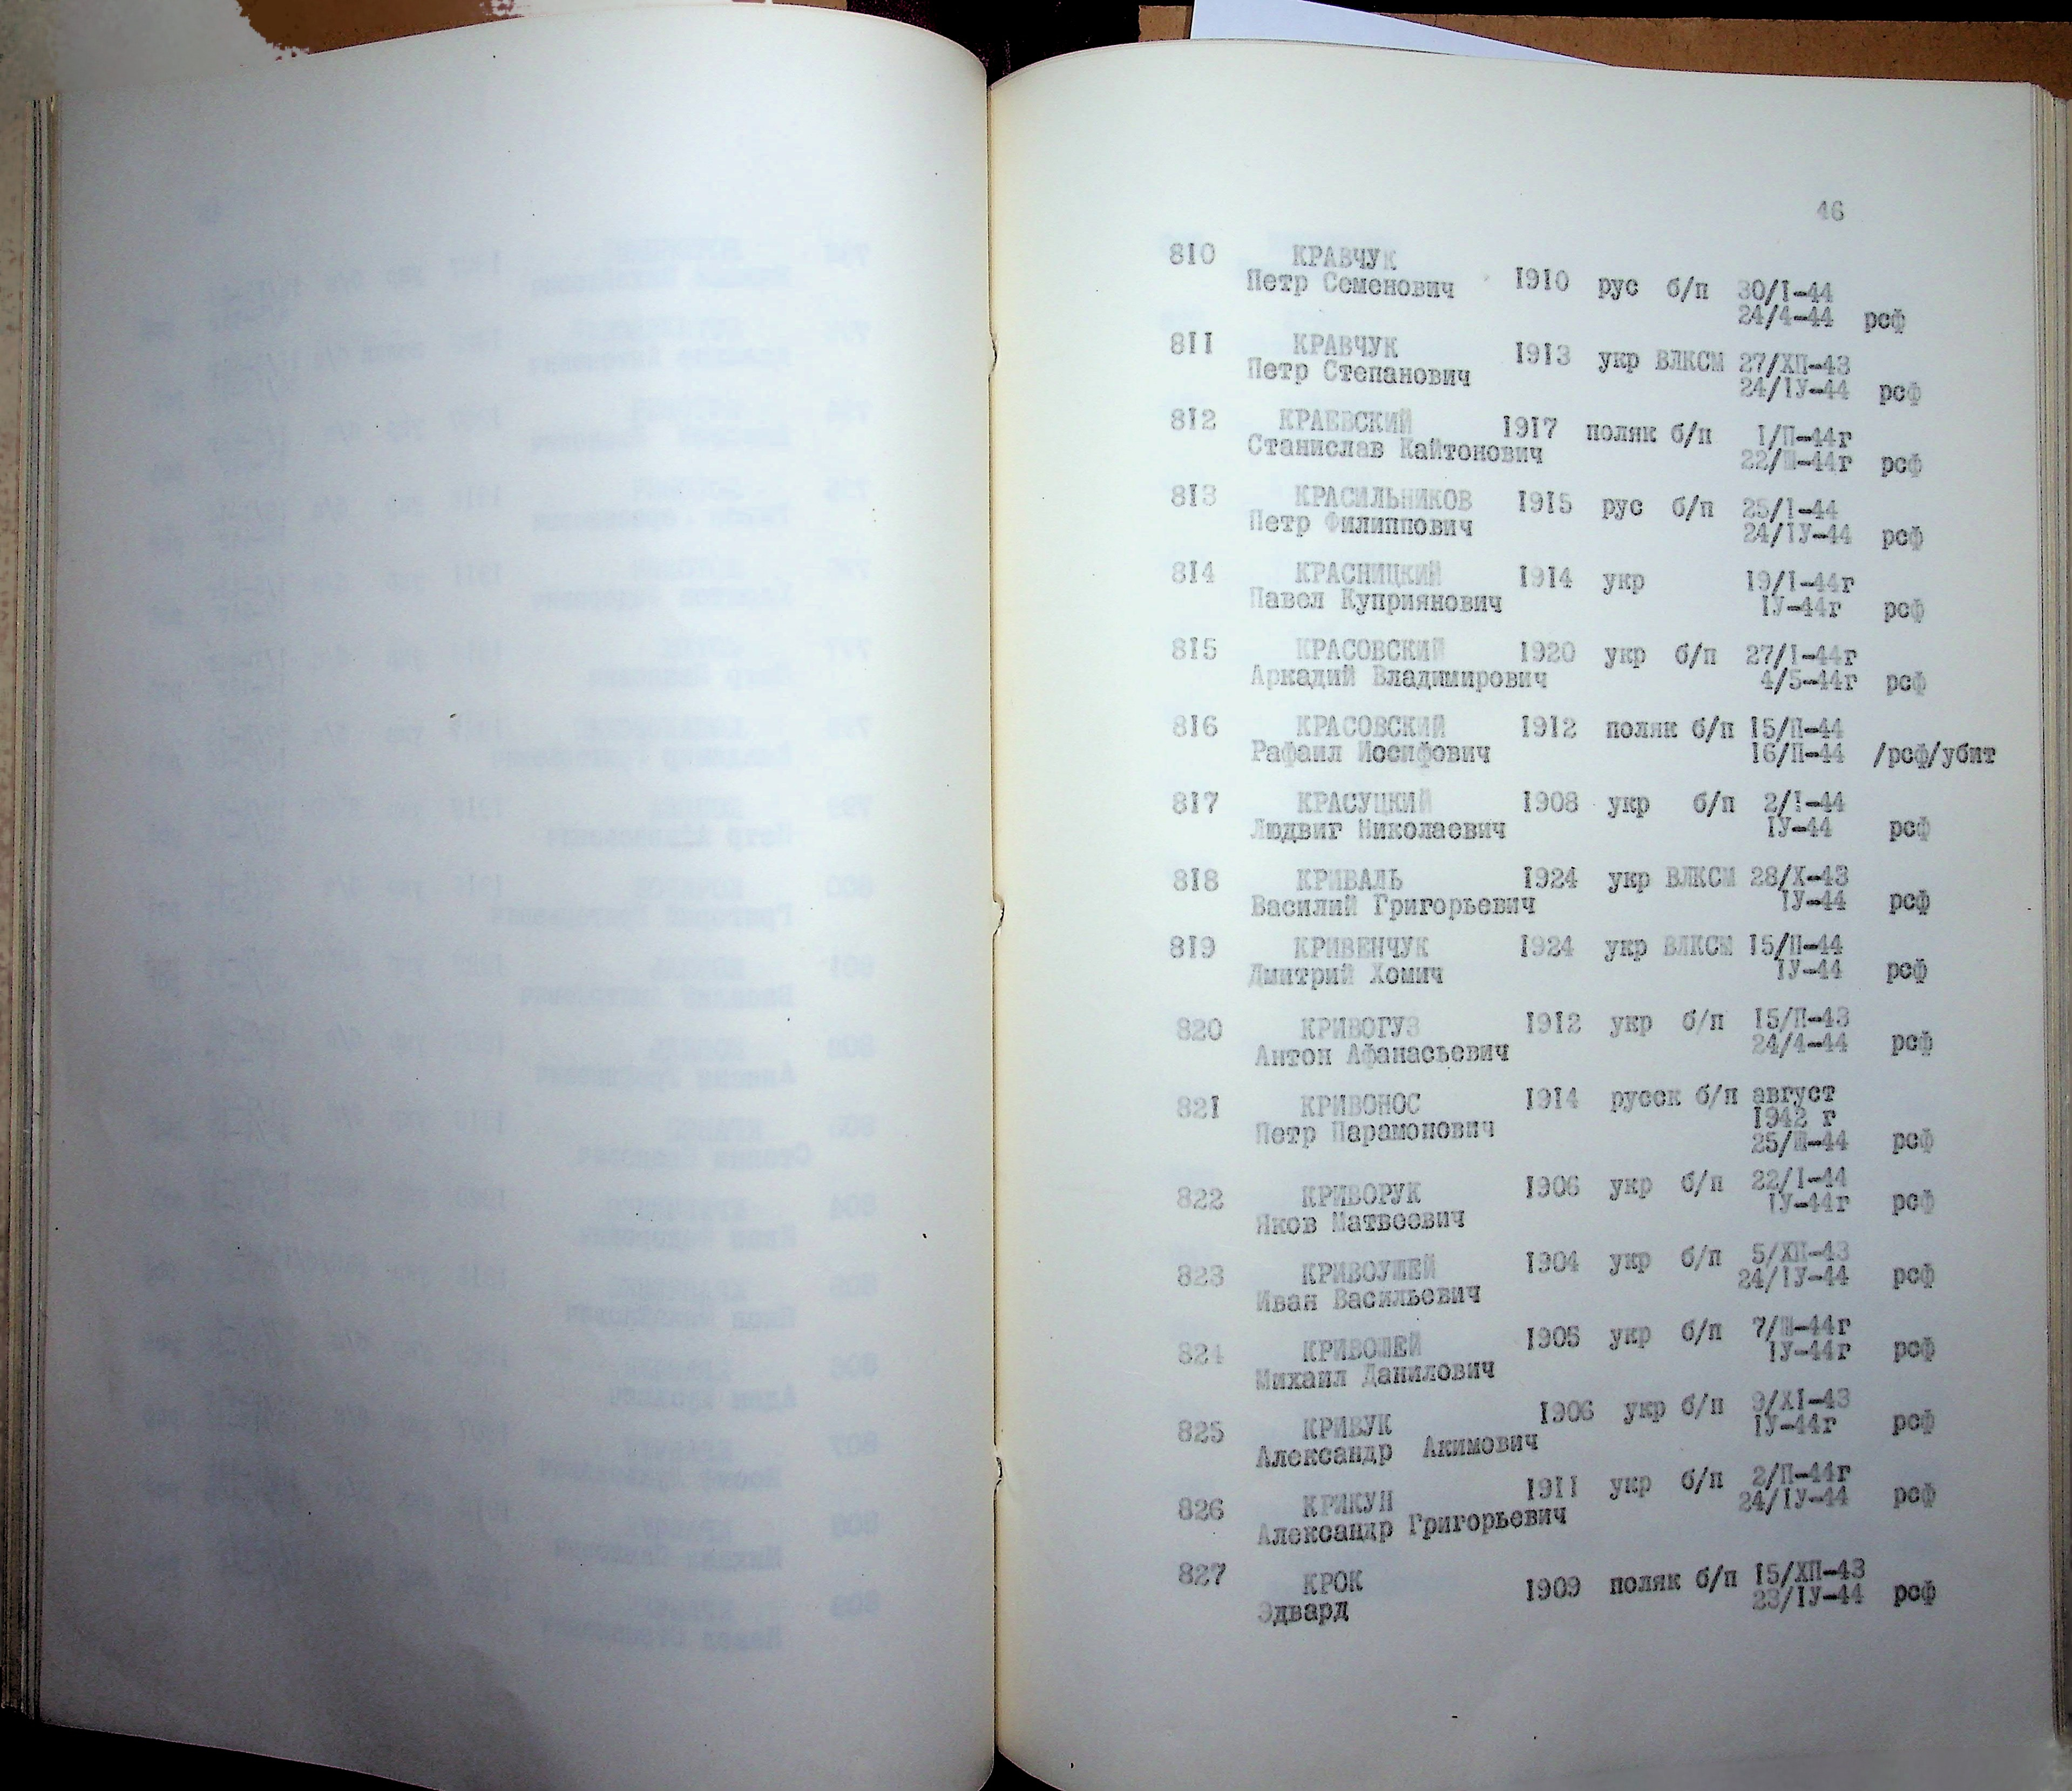 46
810 КРАВЧУК
Петр Семенович 1910 рус б/п 30/I-44
24/4-44 рсф
811 КРАВЧУК
Петр Степанович 1913 укр ВЛКСМ 27/ХП-43
24/IУ-44 рсф
812 КРАЕВСКИЙ 1917 поляк б/п 1/П-44г
Станислав Кайтонович 22/Ш-44г рсф
813 КРАСИЛЬНИКОВ 1915 рус б/п 25/I-44
Петр Филиппович 24/IУ-44 рсф
814 КРАСНИЦКИЙ 1914 укр 19/I-44г
Павел Куприянович IУ-44г рсф
815 КРАСОВСКИЙ 1920 укр б/п 27/I-44г
Аркадий Владимирович 4/5-44г рсф
816 КРАСОВСКИЙ 1912 поляк б/п 15/П-44
Рафаил Иосифович 16/П-44 /рсф/убит
817 КРАСУЦКИЙ 1908 укр б/п 2/I-44
Людвиг Николаевич IУ-44 рсф
818 КРИВАЛЬ 1924 укр ВЛКСМ 28/Х-43
Василий Григорьевич IУ-44 рсф
819 КРИВЕНЧУК 1924 укр ВЛКСМ 15/П-44
Дмитрий Хомич IУ-44 рсф
820 КРИВОГУЗ 1912 укр б/п 15/П-43
Антон Афанасьевич 24/4-44 рсф
821 КРИВОНОС 1914 русск б/п август
Петр Парамонович 1942 г
25/Ш-44 рсф
822 КРИВОРУК 1906 укр б/п 22/I-44
Яков Матвеевич IУ-44г рсф
823 КРИВОУШЕЙ 1904 укр б/п 5/ХП-43
Иван Васильевич 24/IУ-44 рсф
824 КРИВОШЕЙ 1905 укр б/п 7/Ш-44г
Михаил Данилович IУ-44г рсф
825 КРИВУК 1906 укр б/п 9/ХI-43
Александр Акимович IУ-44г рсф
826 КРИКУН 1911 укр б/п 2/П-44г
Александр Григорьевич 24/IУ-44 рсф
827 КРОК 1909 поляк б/п 15/ХП-43
Эдвард 23/IУ-44 рсф